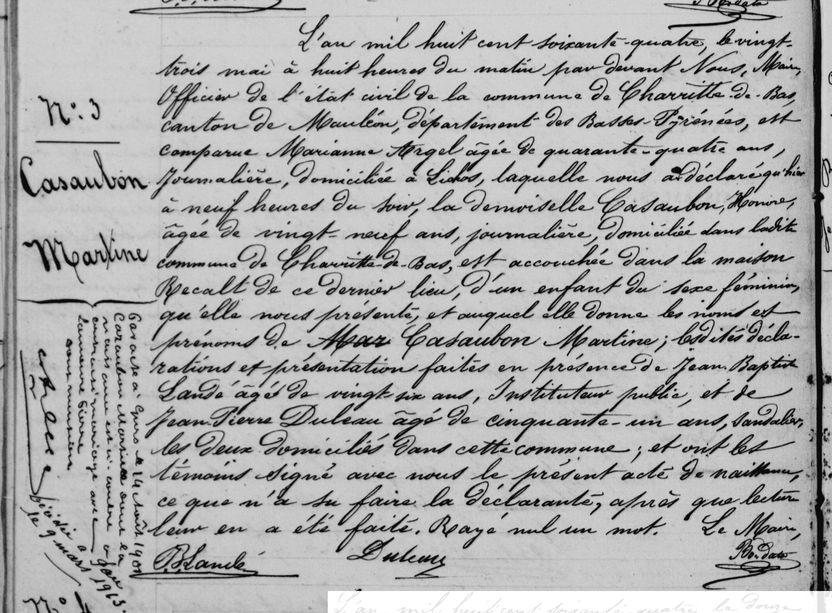 L'an mil huit cent soixante-quatre, le vingt-
trois mai à huit heures du matin par devant Nous, Maire,
Officier de l'état civil de la commune de Charritte-de-Bas,
canton de Mauléon, département des Basses-Pyrénées, est
comparue Marianne Argel âgée de quarante-quatre ans,
journalière, domiciliée à Lichos, laquelle nous a déclaré qu'hier
à neuf heures du soir, la demoiselle Casaubon, Honoré,
âgée de vingt neuf ans, journalière, domiciliée dans ladite
commune de Charritte-de-Bas, est accouchée dans la maison
Recalt de ce dernier lieu, d'un enfant du sexe féminin,
qu'elle nous présenté, et auquel elle donne les noms et
prénoms de Mar Casaubon Martine; lesdités décla-
rations et présentation faites en présence de Jean-Baptiste
Landé âgé de vingt-six ans, Instituteur public, et de
Jean-Pierre Duleau âgé de cinquante-un ans, sandalier,
les deux domiciliés dans cette commune; et ont les
témoins signé avec nous le présent acte de naissance,
ce que n'a su faire la déclarante, après que lecture
leur en a été faite. Rayé nul un mot. Le Maire,
B. Landé
Duleau
N.º 3
Casaubon
Martine
14 Août 1901
Casaubon Martine
mariage avec
Pierre
décédée à
le 9 mars 1943.
N.º 4
L'an mil huit cent soixante quatre le douze